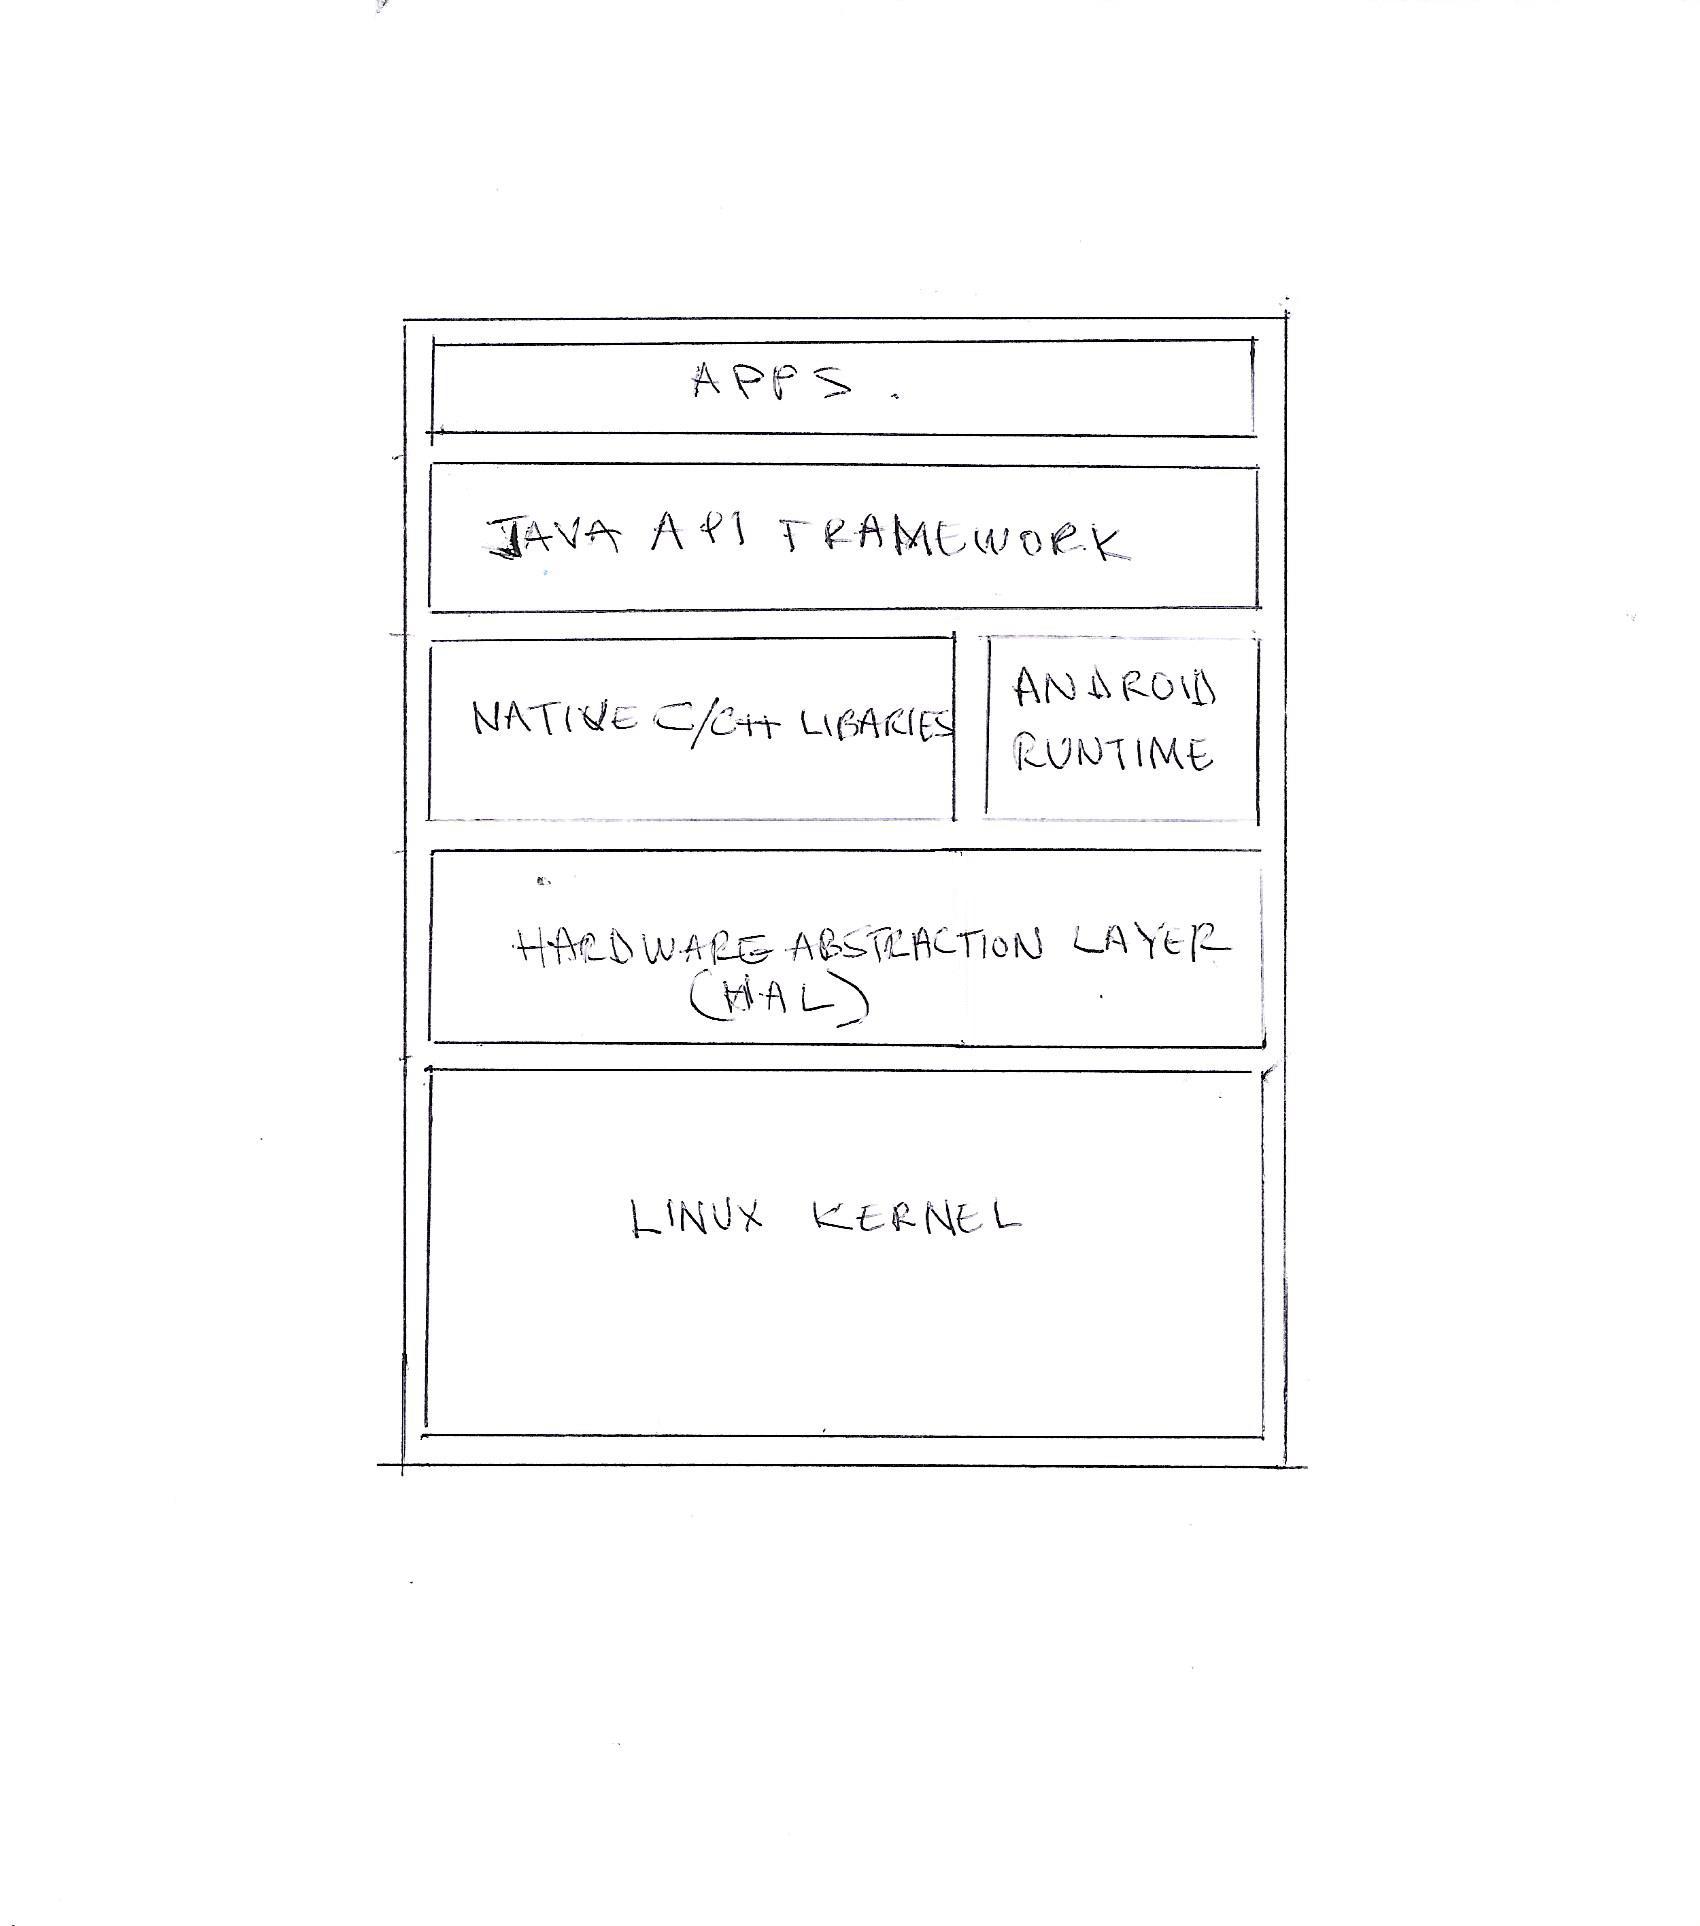 APPS.
JAVA API FRAMEWORK
NATIVE C/C++ LIBARIES
ANDROID
RUNTIME
HARDWARE ABSTRACTION LAYER
(HAL)
LINUX KERNEL